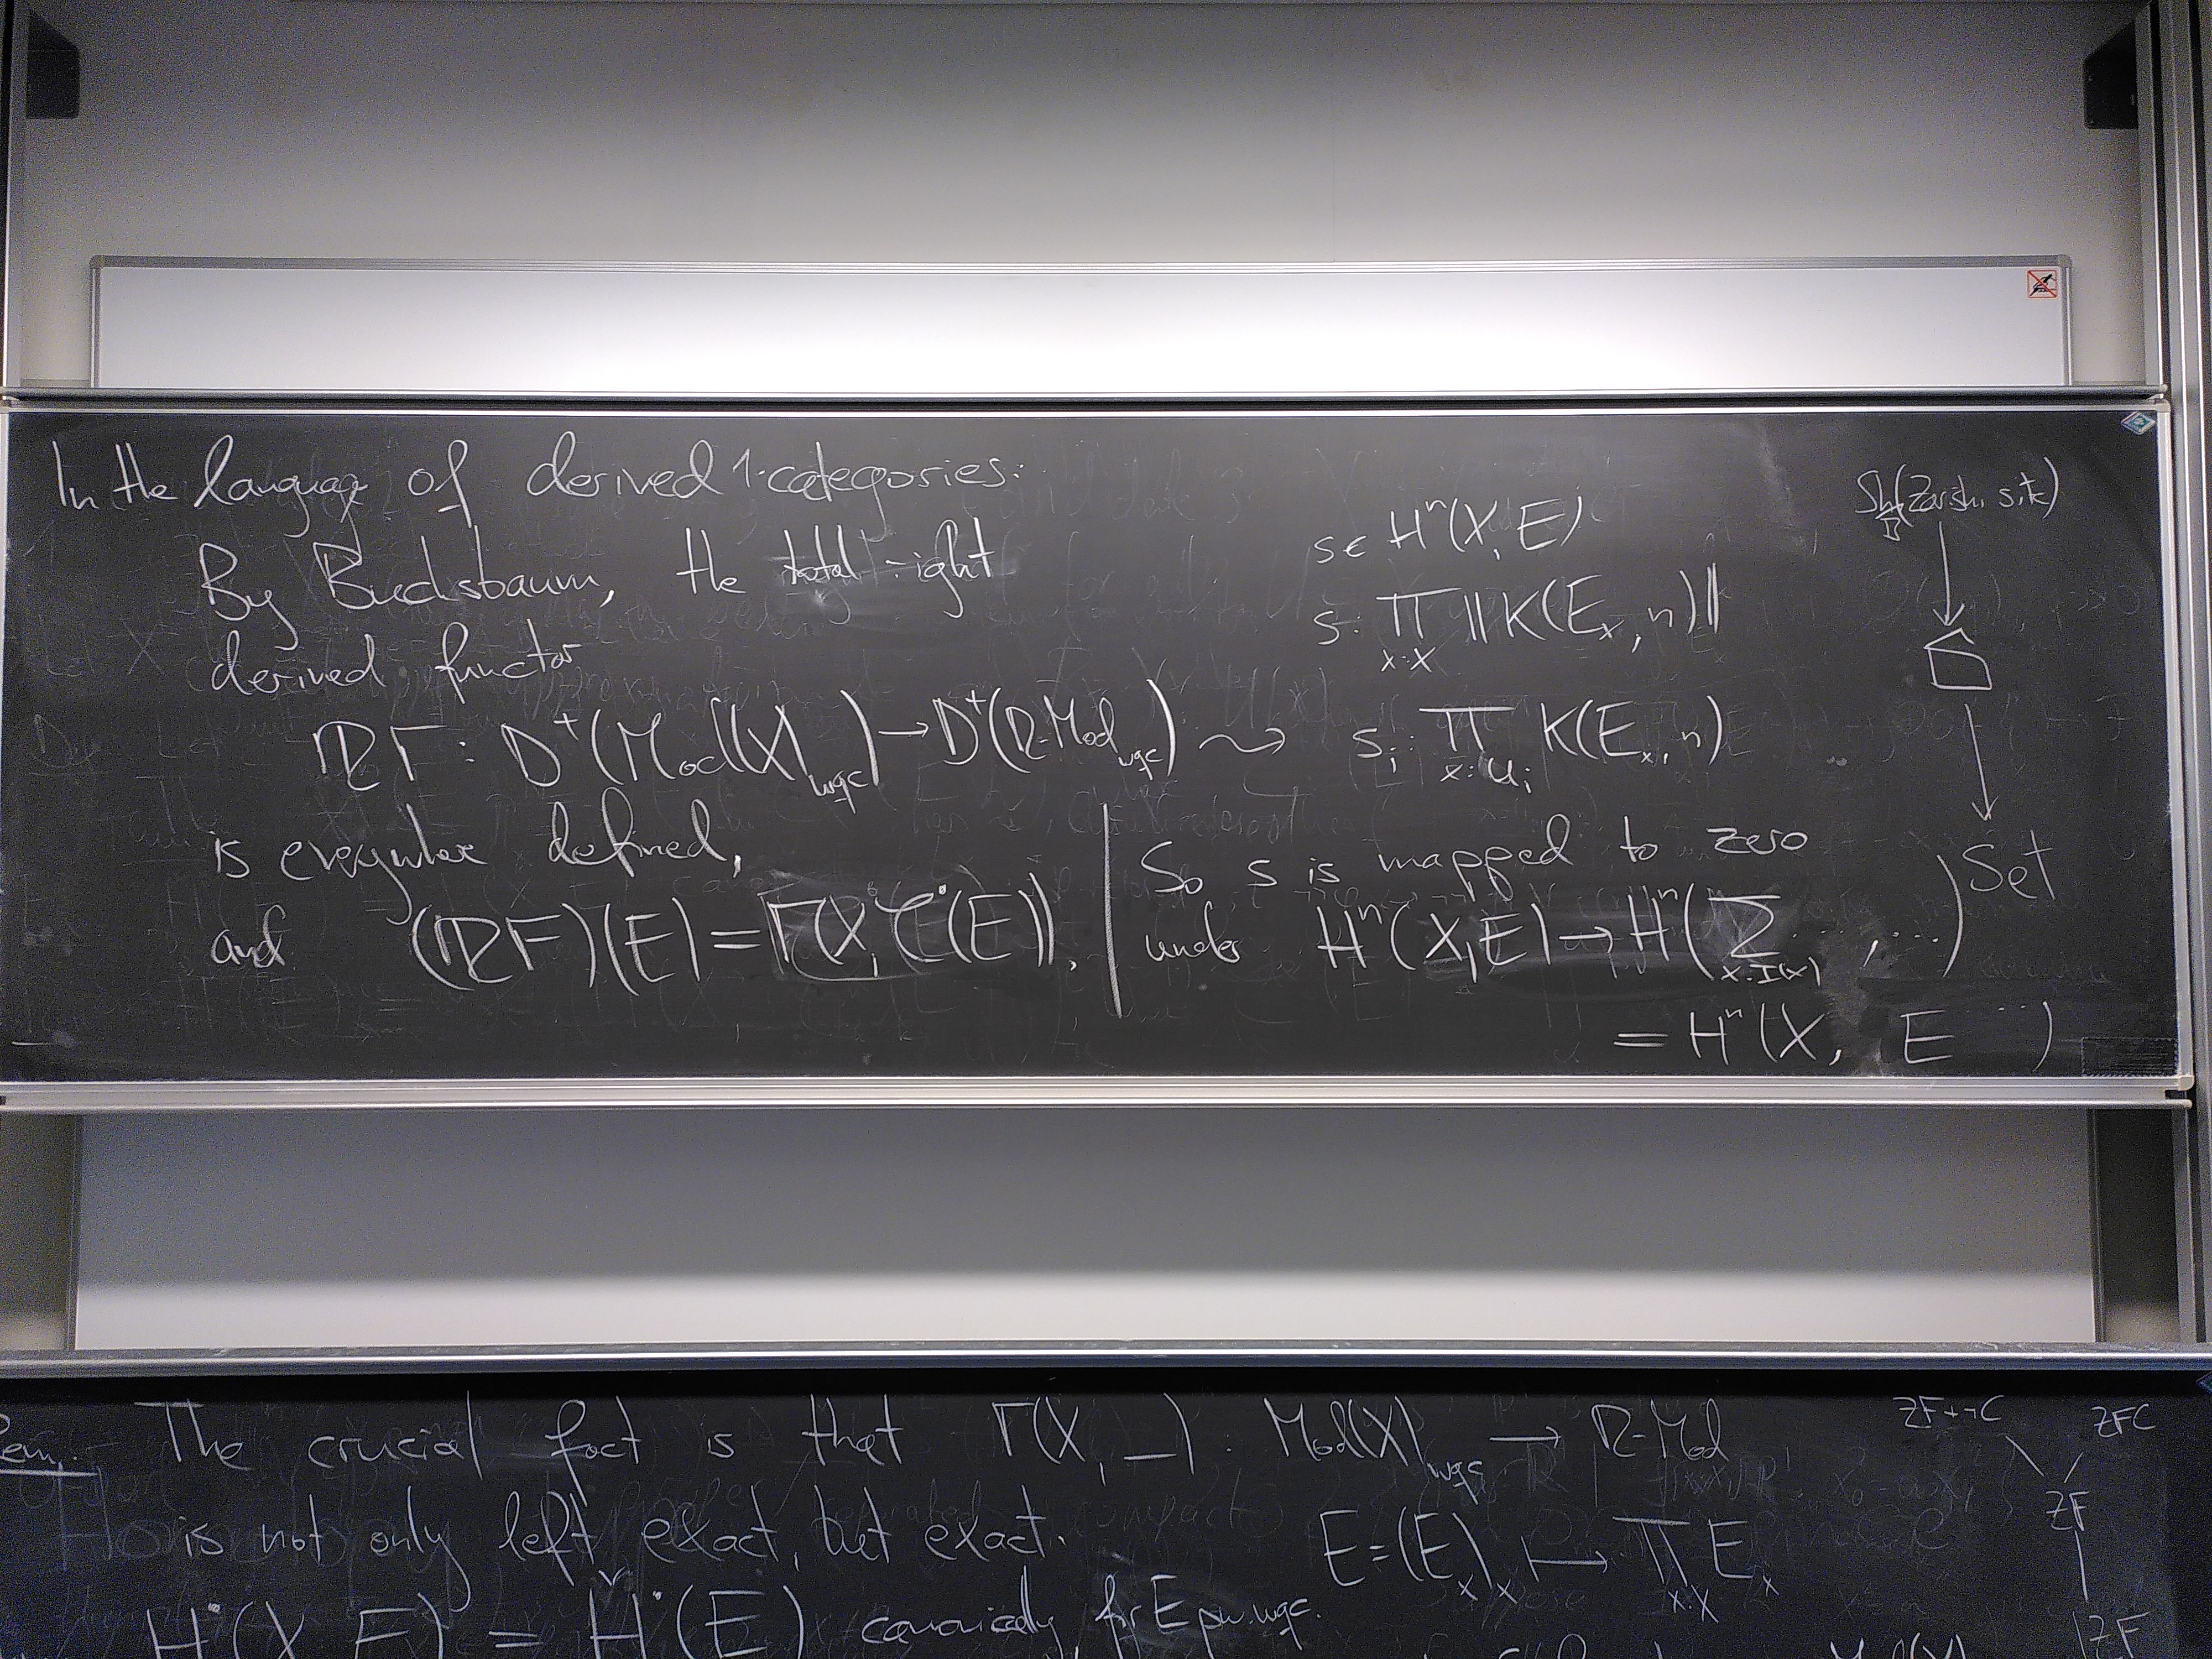 In the language of derived 1-categories:
By Buchsbaum, the total right
derived functor
ℝΓ: D⁺(Mod(X)_wqc) → D⁺(R-Mod_wqc) ⇝
is everywhere defined,
and (ℝΓ)(E) = Γ(X, Č•(E)).
s ∈ Hⁿ(X, E)
s: ∏_{x:X} ‖K(E_x, n)‖
s_i: ∏_{x:U_i} K(E_x, n)
So s is mapped to zero
under Hⁿ(X, E) → Hⁿ(∑_{x:I(x)} ..., ...)
= Hⁿ(X, E ...)
Sh(Zariski site)
Set
The crucial fact is that Γ(X, _): Mod(X)_wqc → R-Mod
is not only left exact, but exact.
E = (E_x)_x ↦ ∏_{x:X} E_x
H•(X, E) = Ȟ•(E) canonically, for E p.w. wqc.
ZF+¬C ZFC
ZF
IZF